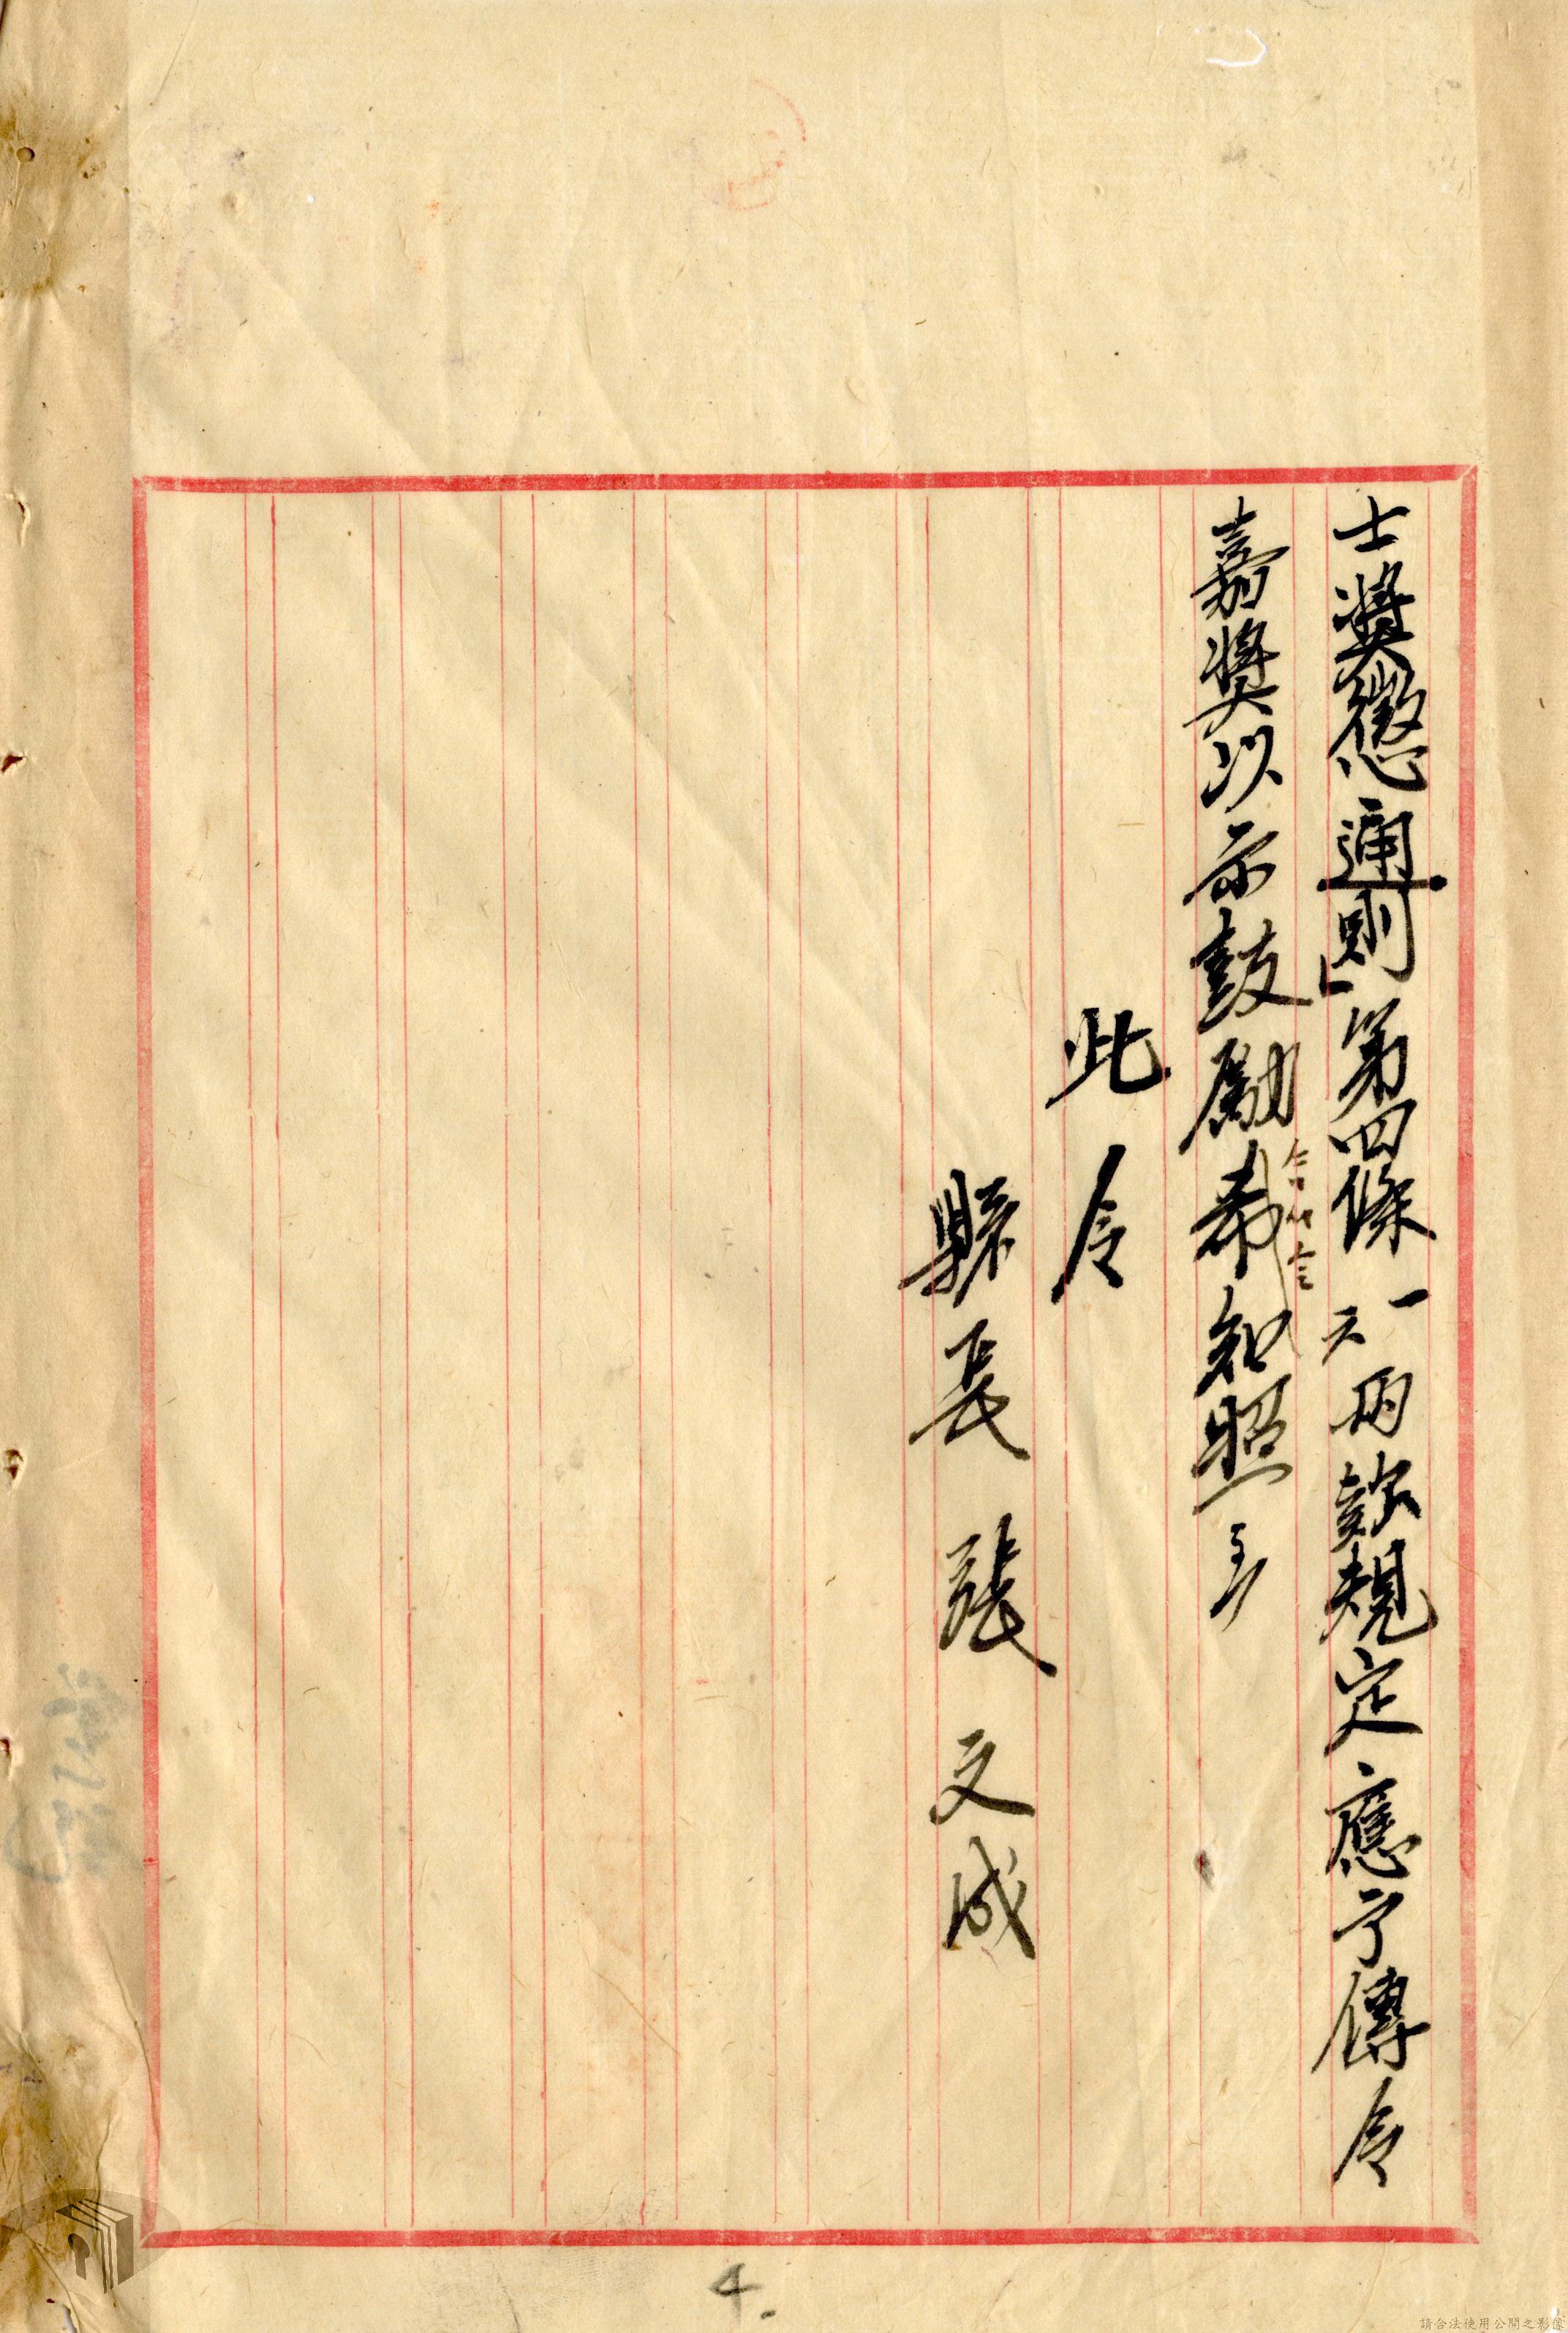 士獎懲通則」第四條一六兩款規定應予傳令
嘉獎以示鼓勵希知照
此令
縣長張文成
4.
請合法使用公開之影像